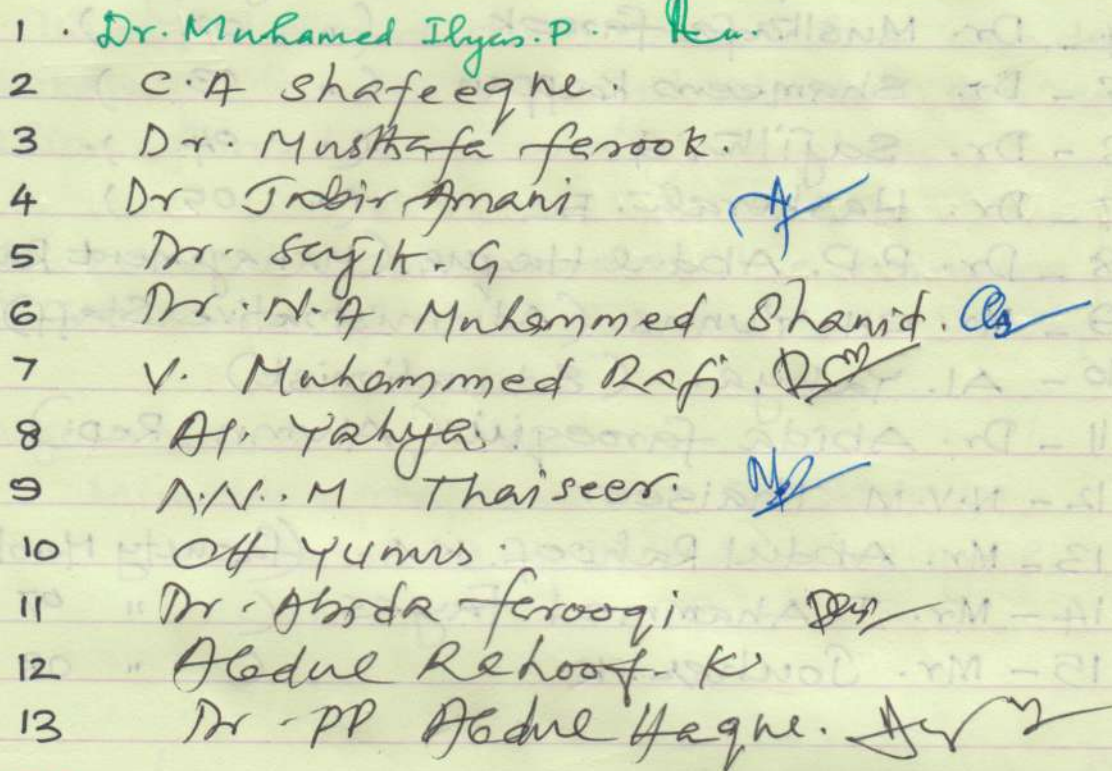 1. Dr. Muhamed Ilyas. P.
2 C.A shafeeque.
3 Dr. Musthafa farook.
4 Dr Jabir Amani
5 Dr. Sajith. G
6 Dr. N.A Muhammed Shanid.
7 V. Muhammed Rafi.
8 AI. Yahya.
9 N.V. M Thaiseer.
10 CH Yunus.
11 Dr. Abida farooqi
12 Abdul Rahoof. K
13 Dr. PP Abdul Haque.